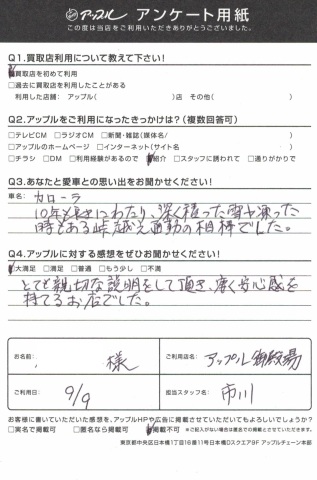 アップル アンケート用紙
この度は当店をご利用いただきありがとうございました。
Q1.買取店利用について教えて下さい!
買取店を初めて利用
□過去に買取店を利用したことがある
利用した店舗: アップル( )店 その他( )
Q2.アップルをご利用になったきっかけは?(複数回答可)
□テレビCM □ラジオCM □新聞・雑誌(媒体名/ )
□アップルのホームページ □インターネット(サイト名 )
□チラシ □DM □利用経験があるので 紹介 □スタッフに誘われて □通りがかりで
Q3.あなたと愛車との思い出をお聞かせください!
車名: カローラ
10年も長きにわたり、深く積った雪や凍った
時もある峠越え通勤の相棒でした。
Q4.アップルに対する感想をぜひお聞かせください!
大満足 □満足 □普通 □もう少し □不満
とても親切な説明をして頂き、安心感を
持てるお店でした。
お名前: 様
ご利用店名: アップル御殿場
ご利用日: 9/9
担当スタッフ名: 市川
お客様に書いていただいた感想を、アップルHPや広告に掲載させていただいてもよろしいでしょうか?
□実名で掲載可 □匿名なら掲載可 掲載不可 ※ご記入がない場合は匿名での掲載とさせていただきます。
東京都中央区日本橋1丁目16番11号日本橋Dスクエア9F アップルチェーン本部